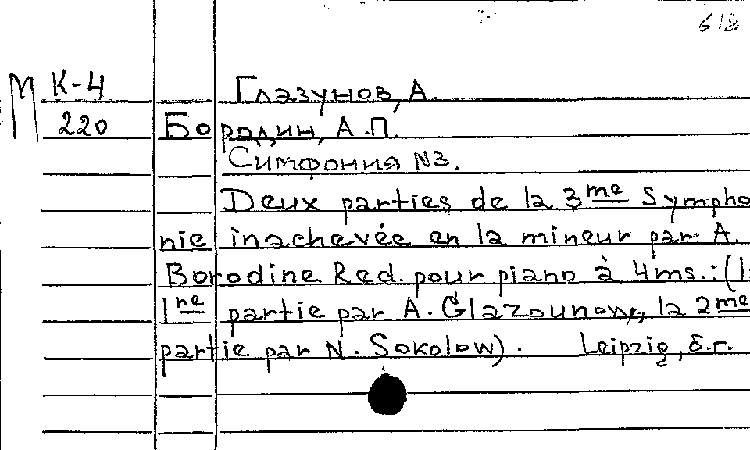 618
М К-4 Глазунов, А.
220 Бородин, А.П.
Симфония №3.
Deux parties de la 3me Sympho
nie inachevée en la mineur par A.
Borodine Red. pour piano à 4ms.: (l
1re partie par A. Glazounow, la 2me
partie par N. Sokolow). Leipzig, б.г.